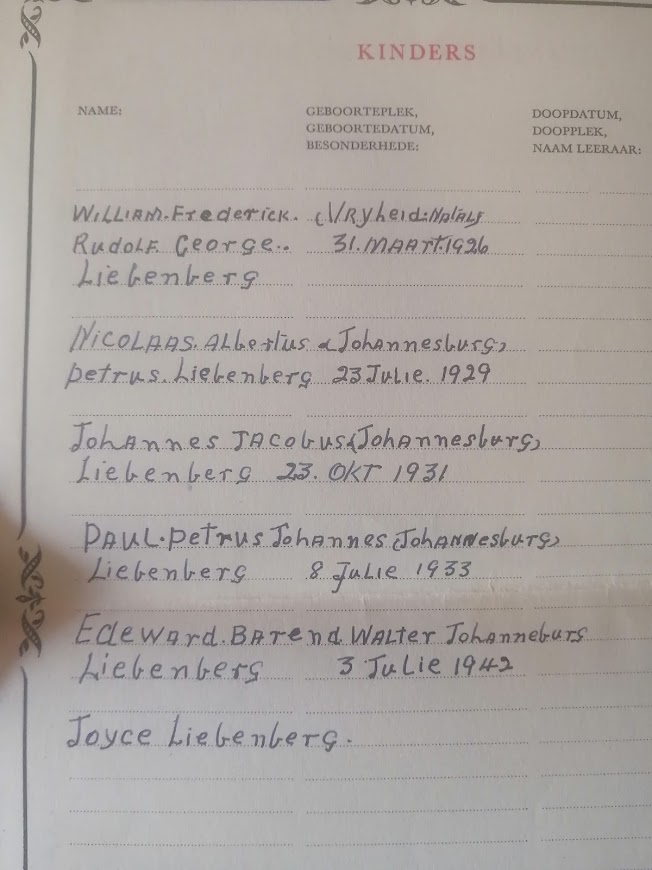 KINDERS
NAME: GEBOORTEPLEK, DOOPDATUM,
GEBOORTEDATUM, DOOPPLEK,
BESONDERHEDE: NAAM LEERAAR:
WILLIAM. Frederick. (VRyheid:NATAL)
RUDOLF. George.. 31. MAART. 1926
Liebenberg
NICOLAAS. Albertus (Johannesburg)
petrus. Liebenberg 23 Julie. 1929
Johannes JACobus (Johannesburg)
Liebenberg 23. OKT 1931
PAUL. petrus Johannes (Johannesburg)
Liebenberg 8 Julie 1933
Edeward. BARend. WALTer Johanneburg
Liebenberg 3 Julie 1942
Joyce Liebenberg.